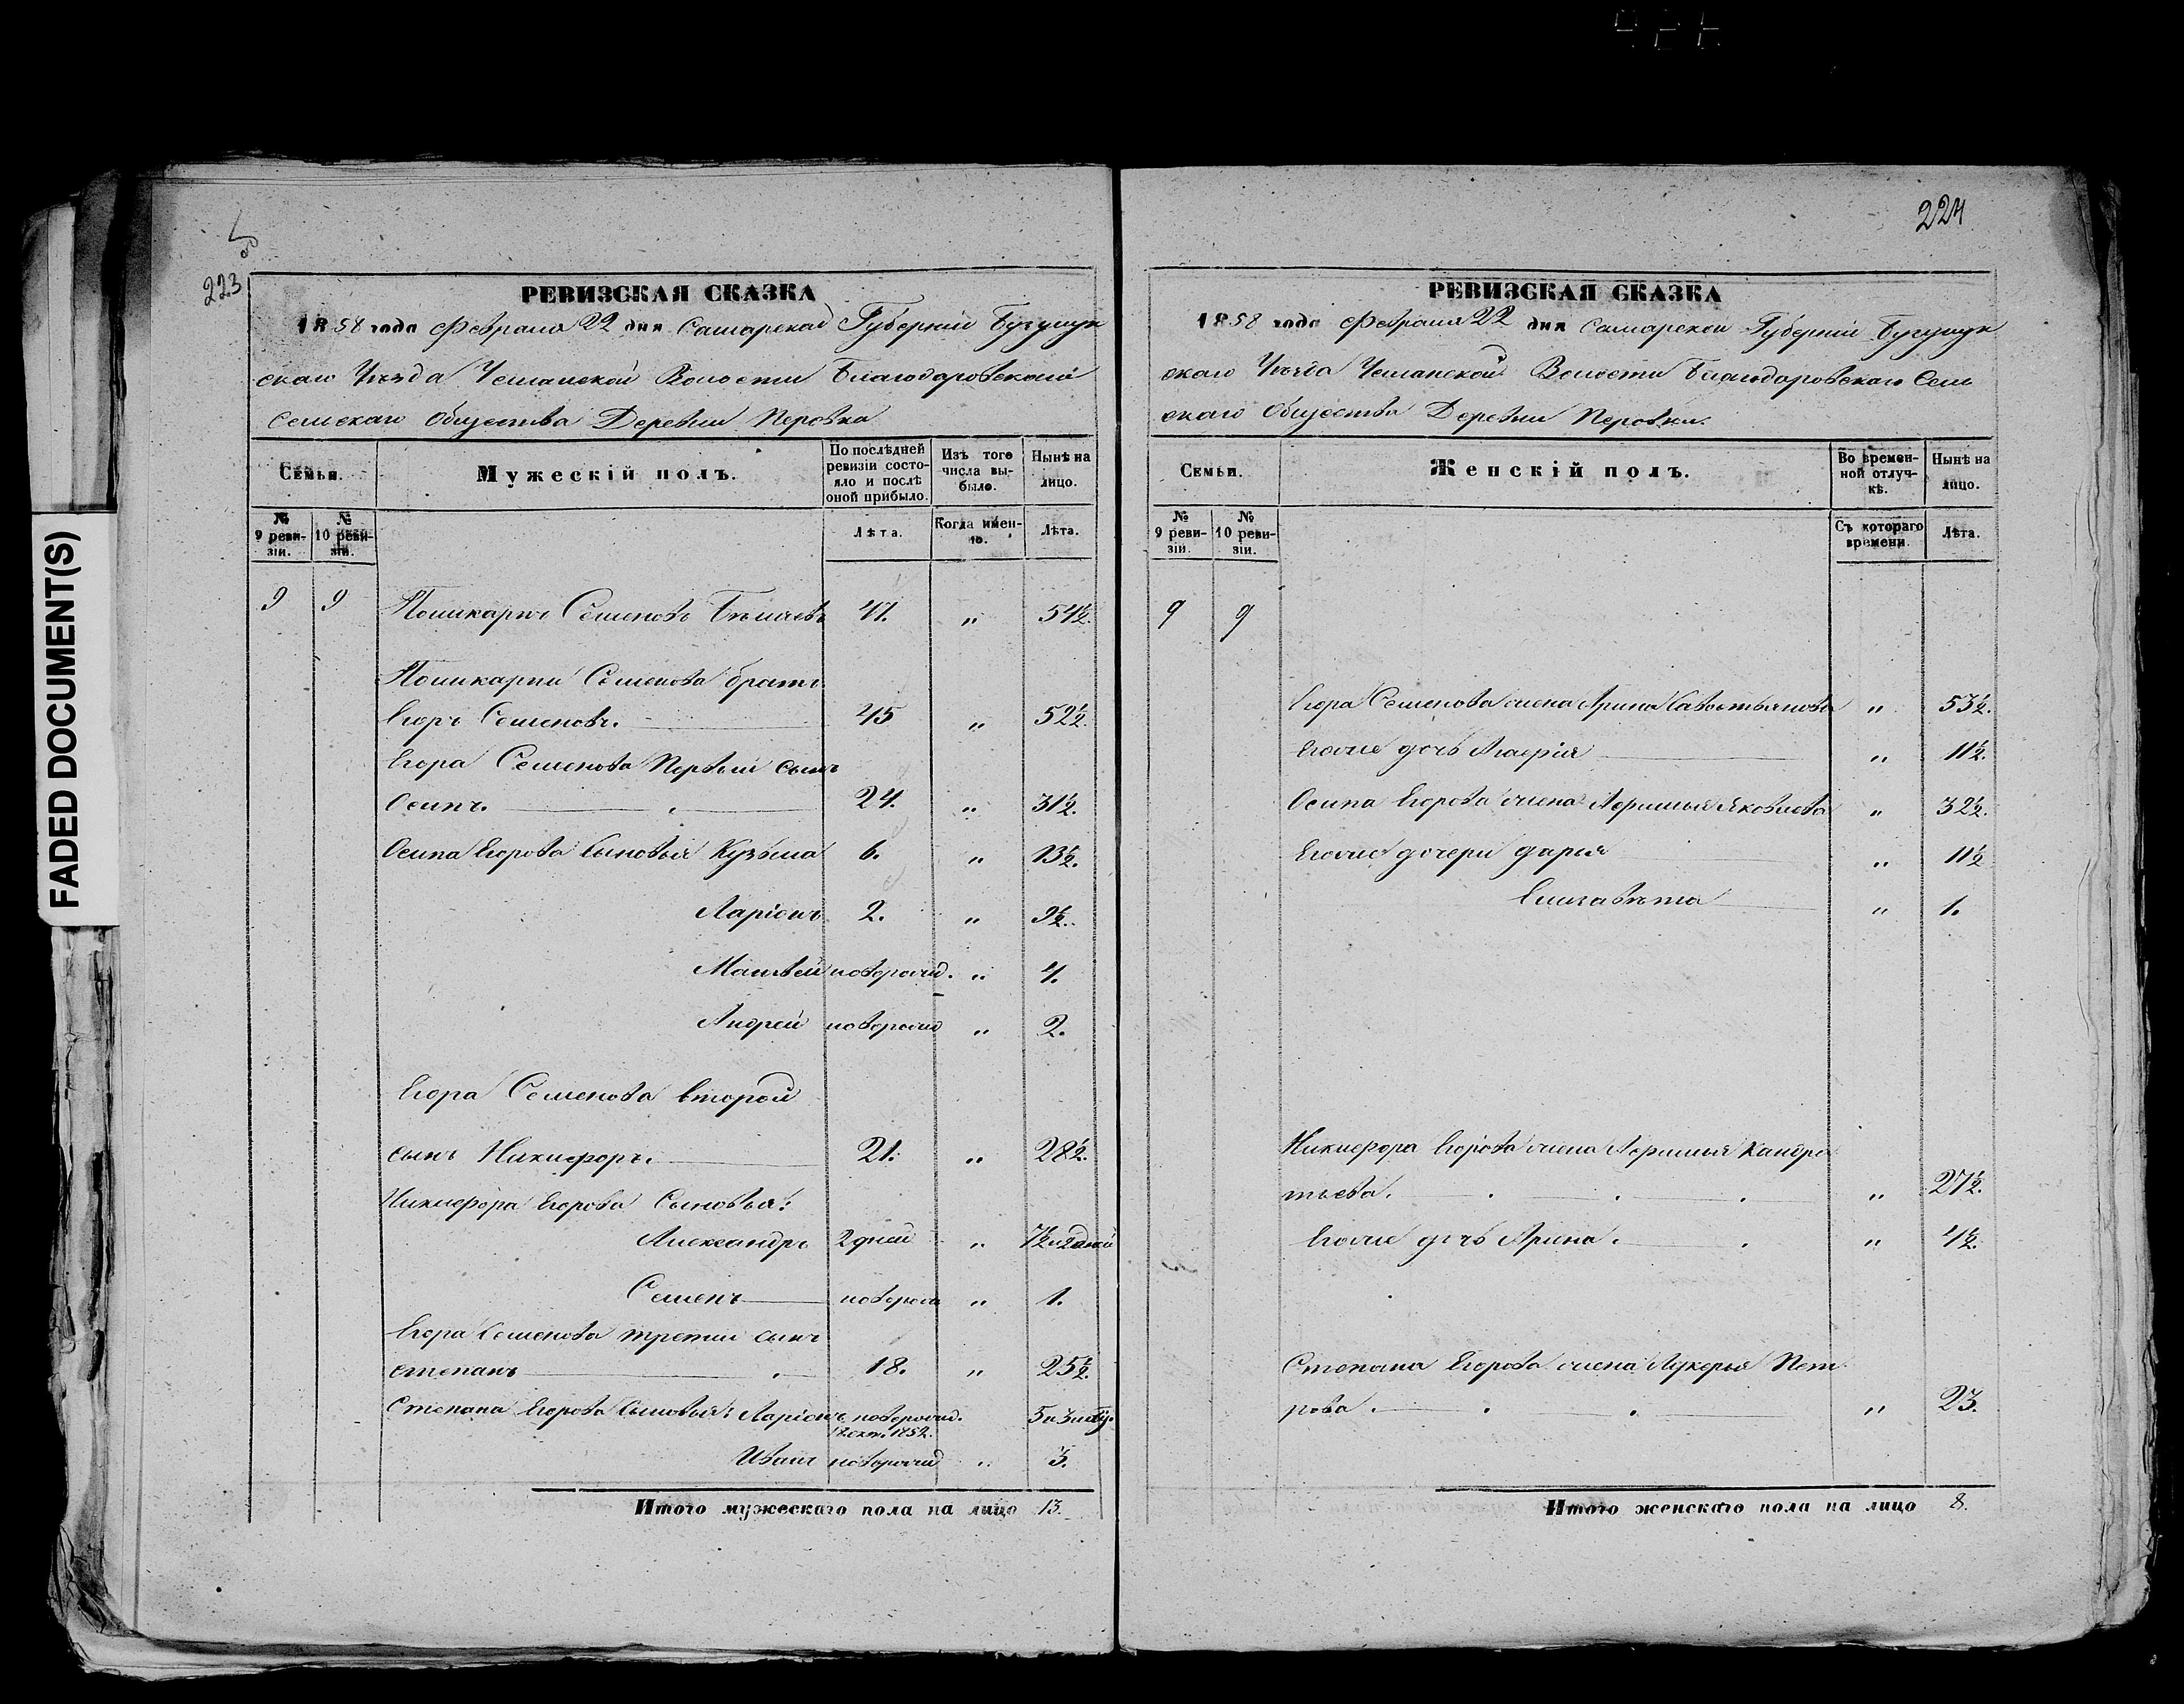 FADED DOCUMENT(S)
223
РЕВИЗСКАЯ СКАЗКА
1858 года Февраля 22 дня Самарской Губерніи Бугурук
скаго Уѣзда Бѣлоцерковской
Сельскаго Общества Деревни Перовка
Семьи.
Мужескій полъ.
По послѣдней ревизіи состояло и послѣ оной прибыло.
Изъ того числа выбыло.
Нынѣ на лицо.
№ 9 ревизіи.
№ 10 ревизіи.
Лѣта.
Когда именно.
Лѣта.
9 9 Поликарпъ Семеновъ 47. „ 54½.
Поликарпа Семенова братъ
Егоръ Семеновъ. 45 „ 52½.
Егора Семенова Первый сынъ
Осипъ. 24. „ 31½.
Осипа Егорова Сыновья Кузьма 6. „ 13½.
Ларіонъ 2. „ 9½.
Матвѣй новорожд. „ 4.
Андрей новорожд „ 2.
Егора Семенова второй
сынъ Никифоръ. 21. „ 28½.
Никифора Егорова Сыновья:
Александръ 2 дней „ 7½ и 2 дней
Семенъ новорож „ 1.
Егора Семенова третий сынъ
степанъ 18. „ 25½.
Степана Егорова Сыновья: Ларіонъ новорожд. 5 и 3
окт. 1852.
Иванъ новорожд „ 3.
Итого мужескаго пола на лицо 13.
224
РЕВИЗСКАЯ СКАЗКА
1858 года Февраля 22 дня Самарской Губерніи Бугурук
скаго Уѣзда Волости Благодаровскаго Сель
скаго Общества Деревни Перовки.
Семьи.
Женскій полъ.
Во временной отлучкѣ.
Нынѣ на лицо.
№ 9 ревизіи.
№ 10 ревизіи.
Съ котораго времени.
Лѣта.
9 9
Егора Семенова жена Арина Савостьянова „ 53½.
Егоже дочь „ 11½.
Осипа Егорова жена Яковлева „ 32½.
Егоже дочери дарья „ 11½
Елизавѣта „ 1.
Никифора Егорова жена Кандра
тьева. „ 27½.
Егоже дочь Арина. „ 4½.
Степана Егорова жена Лукерья Пет
рова. „ 23.
Итого женскаго пола на лицо 8.